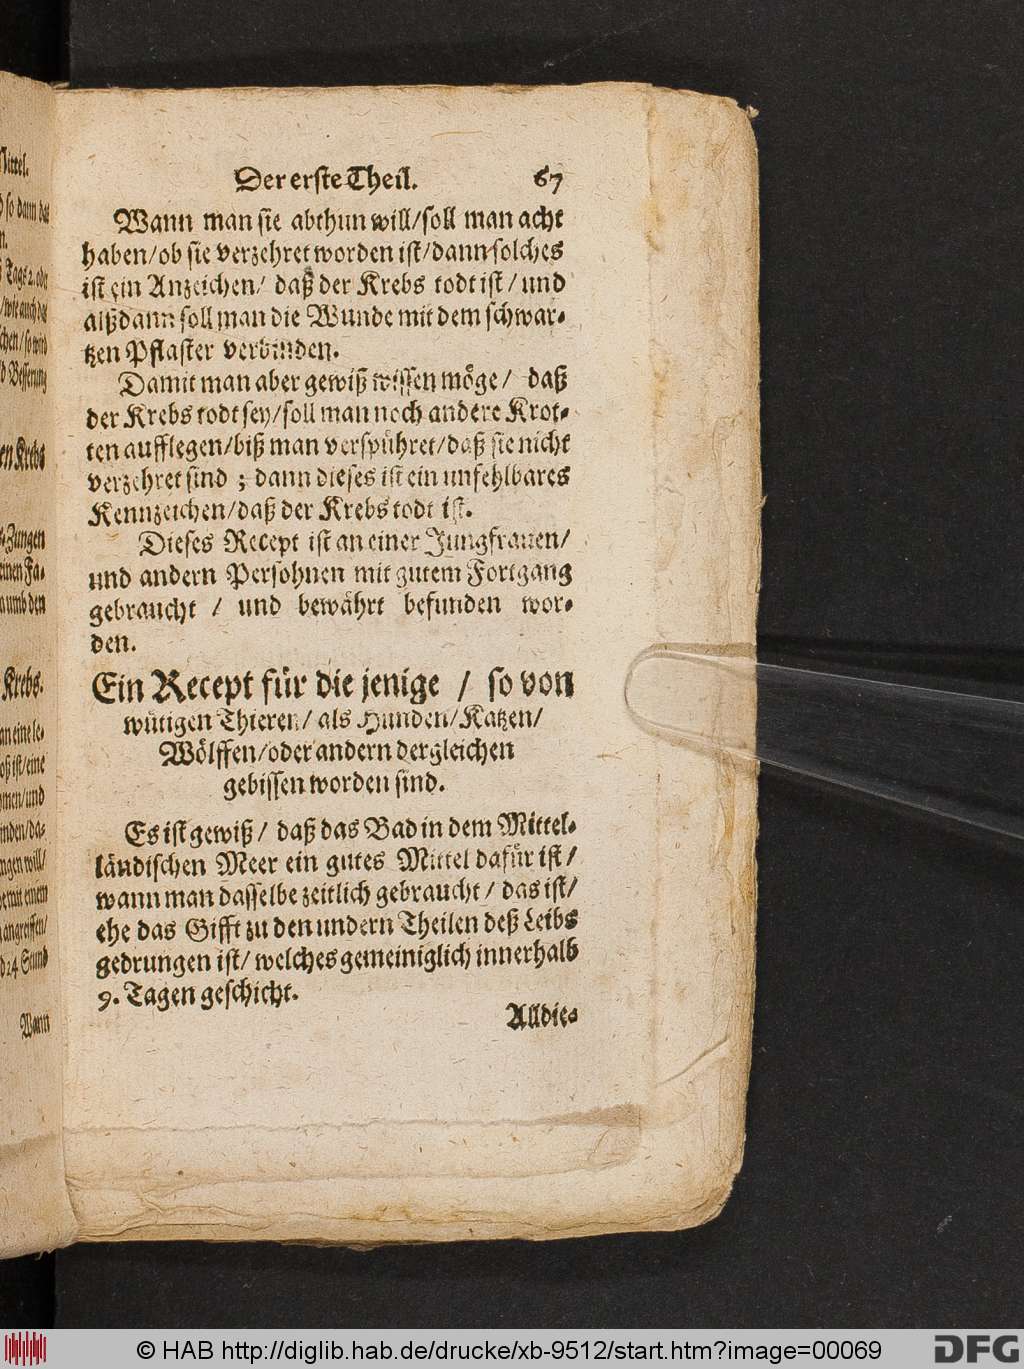 Der erste Theil. 67
Wann man sie abthun will/soll man acht
haben/ob sie verzehret worden ist/dann solches
ist ein Anzeichen/ daß der Krebs todt ist/ und
alßdann soll man die Wunde mit dem schwar-
tzen Pflaster verbinden.
Damit man aber gewiß wissen möge/ daß
der Krebs todt sey/soll man noch andere Krot-
ten aufflegen/biß man verspühret/daß sie nicht
verzehret sind ; dann dieses ist ein unfehlbares
Kennzeichen/daß der Krebs todt ist.
Dieses Recept ist an einer Jungfrauen/
und andern Persohnen mit gutem Fortgang
gebraucht / und bewährt befunden wor-
den.
Ein Recept für die jenige / so von
wütigen Thieren/ als Hunden/Katzen/
Wölffen/oder andern dergleichen
gebissen worden sind.
Es ist gewiß/ daß das Bad in dem Mittel-
ländischen Meer ein gutes Mittel dafür ist/
wann man dasselbe zeitlich gebraucht/ das ist/
ehe das Gifft zu den undern Theilen deß Leibs
gedrungen ist/ welches gemeiniglich innerhalb
9. Tagen geschicht.
Alldie-
Mittel.
so dann das
Tage 2. oder
/wie auch das
/so wird
Besserung
Krebs
Zungen
einen Fa-
umb den
Krebs.
an eine le-
ist/eine
/und
/da-
will/
mit einem
angreiffen/
24 Stund
Wann
© HAB http://diglib.hab.de/drucke/xb-9512/start.htm?image=00069
DFG